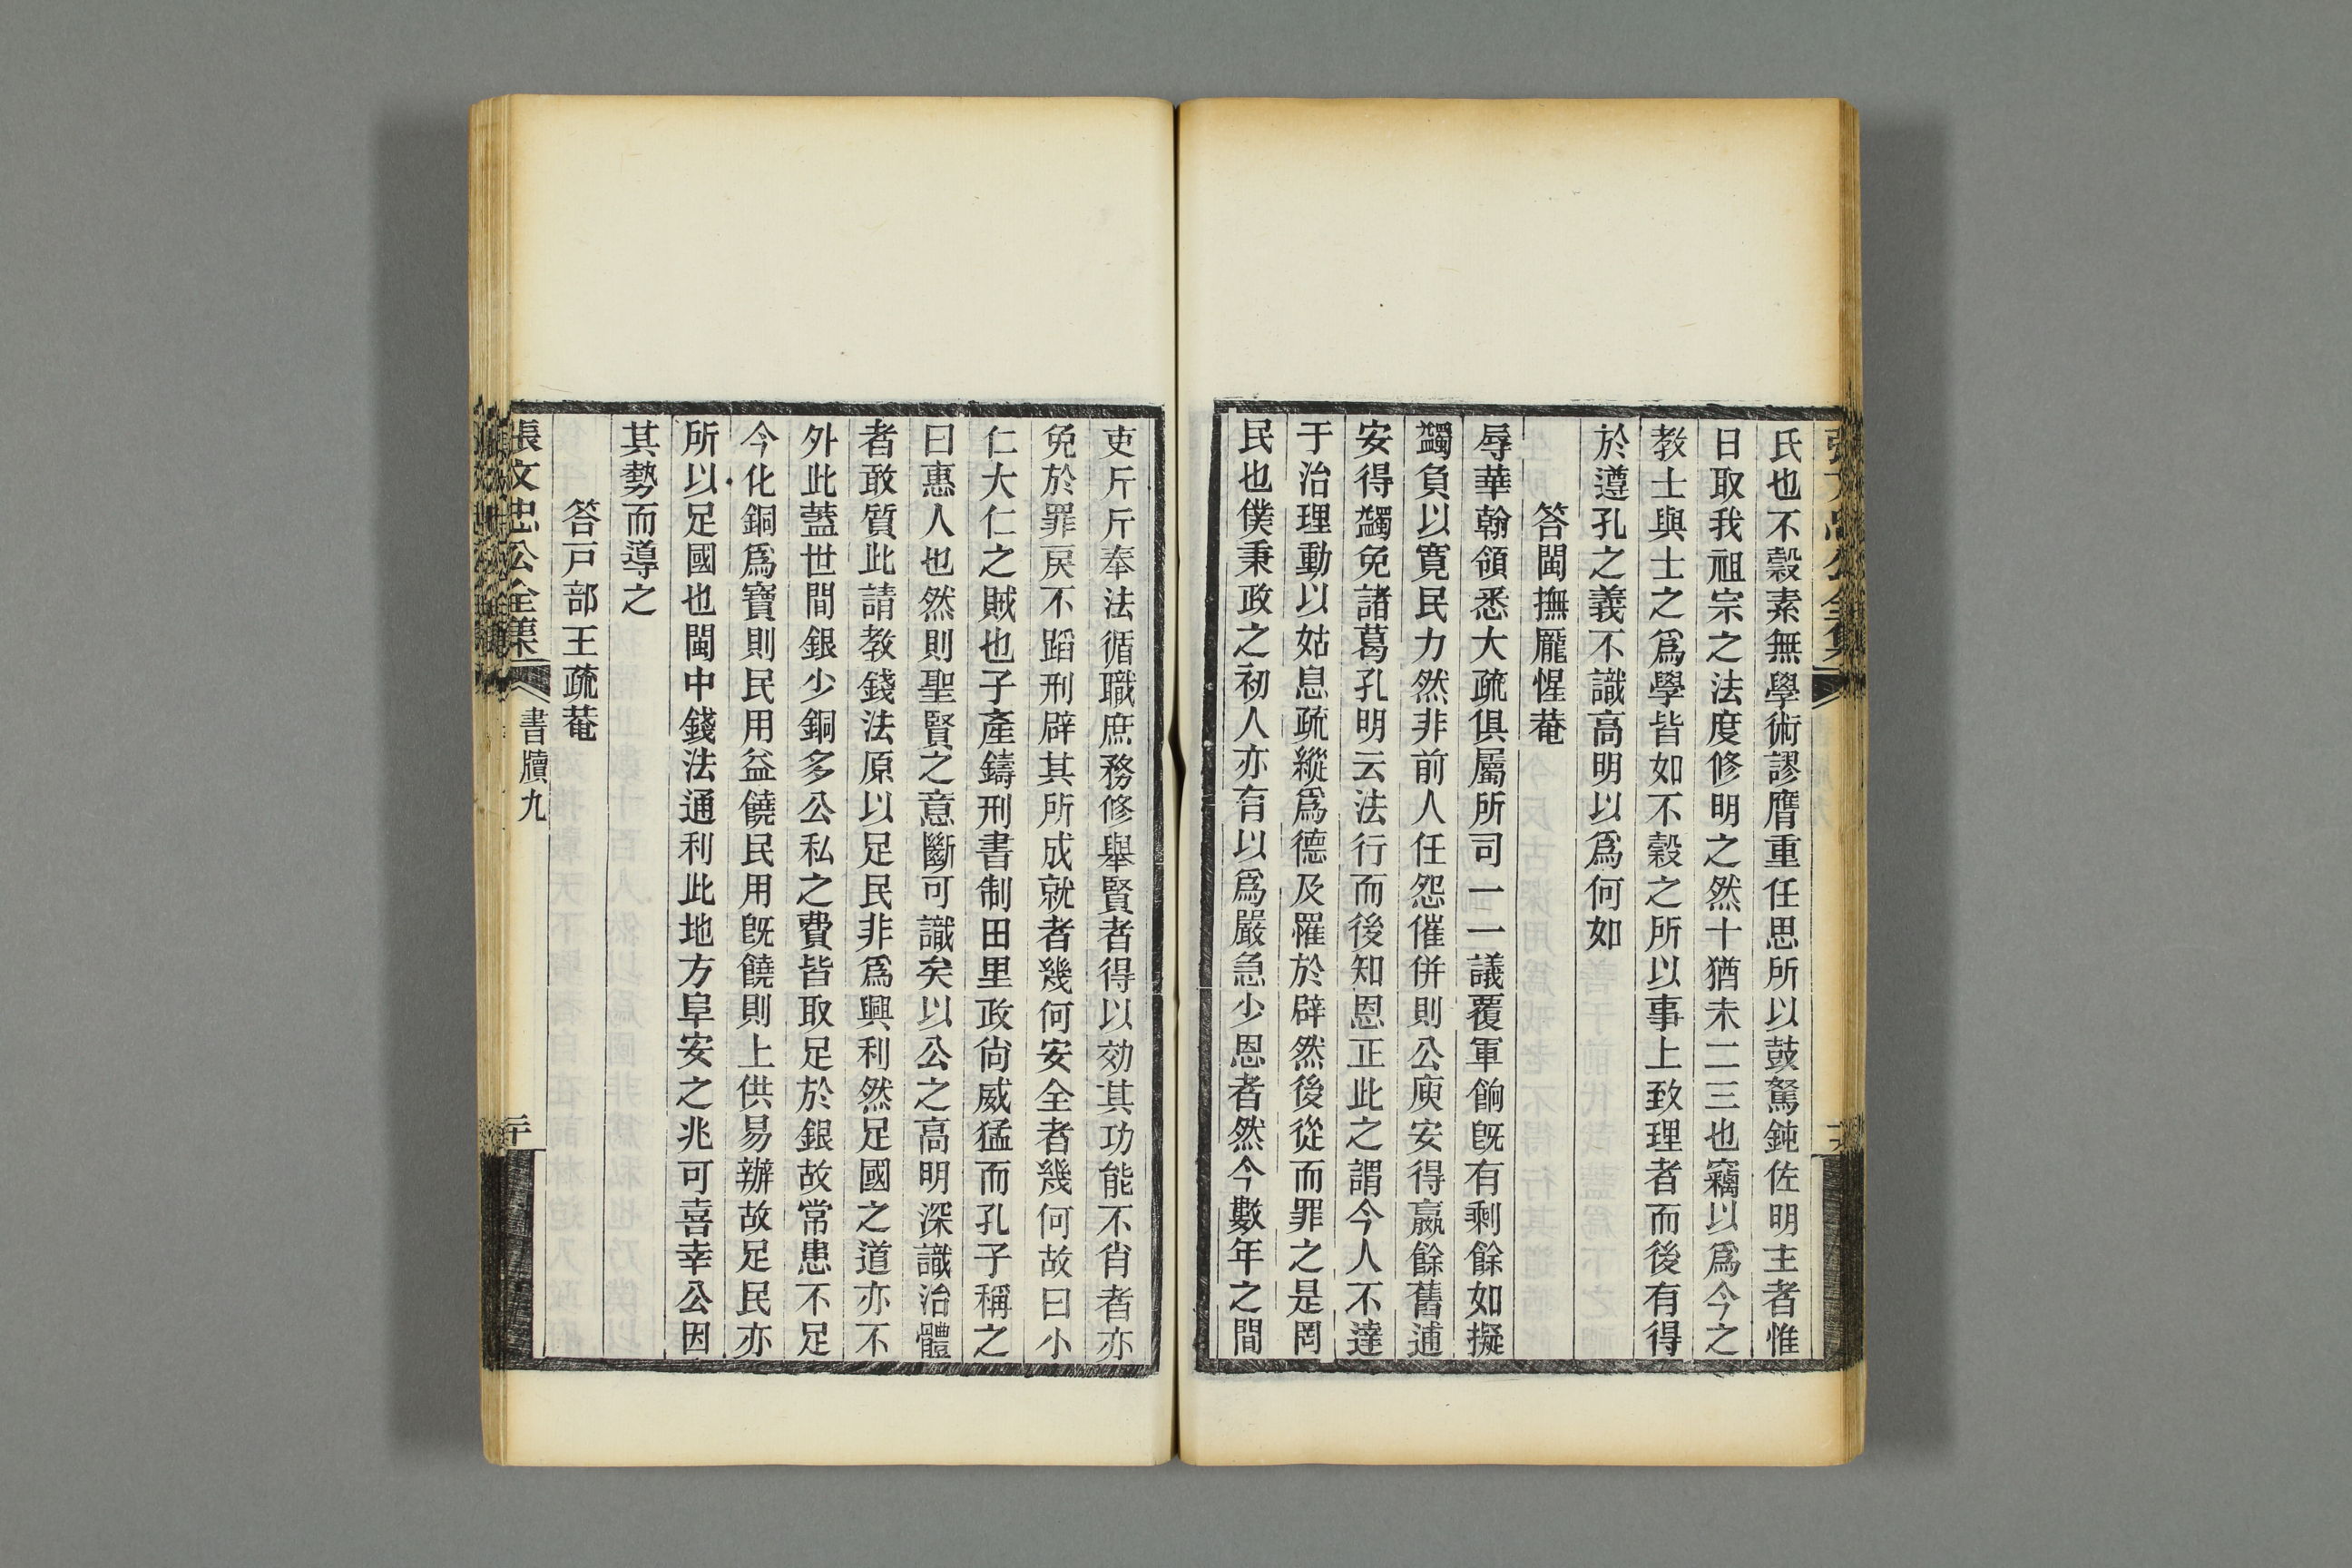 氏也不穀素無學術謬膺重任思所以鼓駑鈍佐明主者惟
日取我祖宗之法度修明之然十猶未二三也竊以爲今之
教士與士之爲學皆如不穀之所以事上致理者而後有得
於遵孔之義不識高明以爲何如
答閩撫龐惺菴
辱華翰領悉大疏俱屬所司一一議覆軍餉旣有剩餘如擬
蠲負以寬民力然非前人任怨催併則公庾安得嬴餘舊逋
安得蠲免諸葛孔明云法行而後知恩正此之謂今人不達
于治理動以姑息疏縱爲德及罹於辟然後從而罪之是罔
民也僕秉政之初人亦有以爲嚴急少恩者然今數年之間
吏斤斤奉法循職庶務修舉賢者得以効其功能不肖者亦
免於罪戾不蹈刑辟其所成就者幾何安全者幾何故曰小
仁大仁之賊也子產鑄刑書制田里政尙威猛而孔子稱之
曰惠人也然則聖賢之意斷可識矣以公之高明深識治體
者敢質此請教錢法原以足民非爲興利然足國之道亦不
外此蓋世間銀少銅多公私之費皆取足於銀故常患不足
今化銅爲寶則民用益饒民用旣饒則上供易辦故足民亦
所以足國也閩中錢法通利此地方阜安之兆可喜幸公因
其勢而導之
答戸部王疏菴
張文忠公全集 書牘九 二十